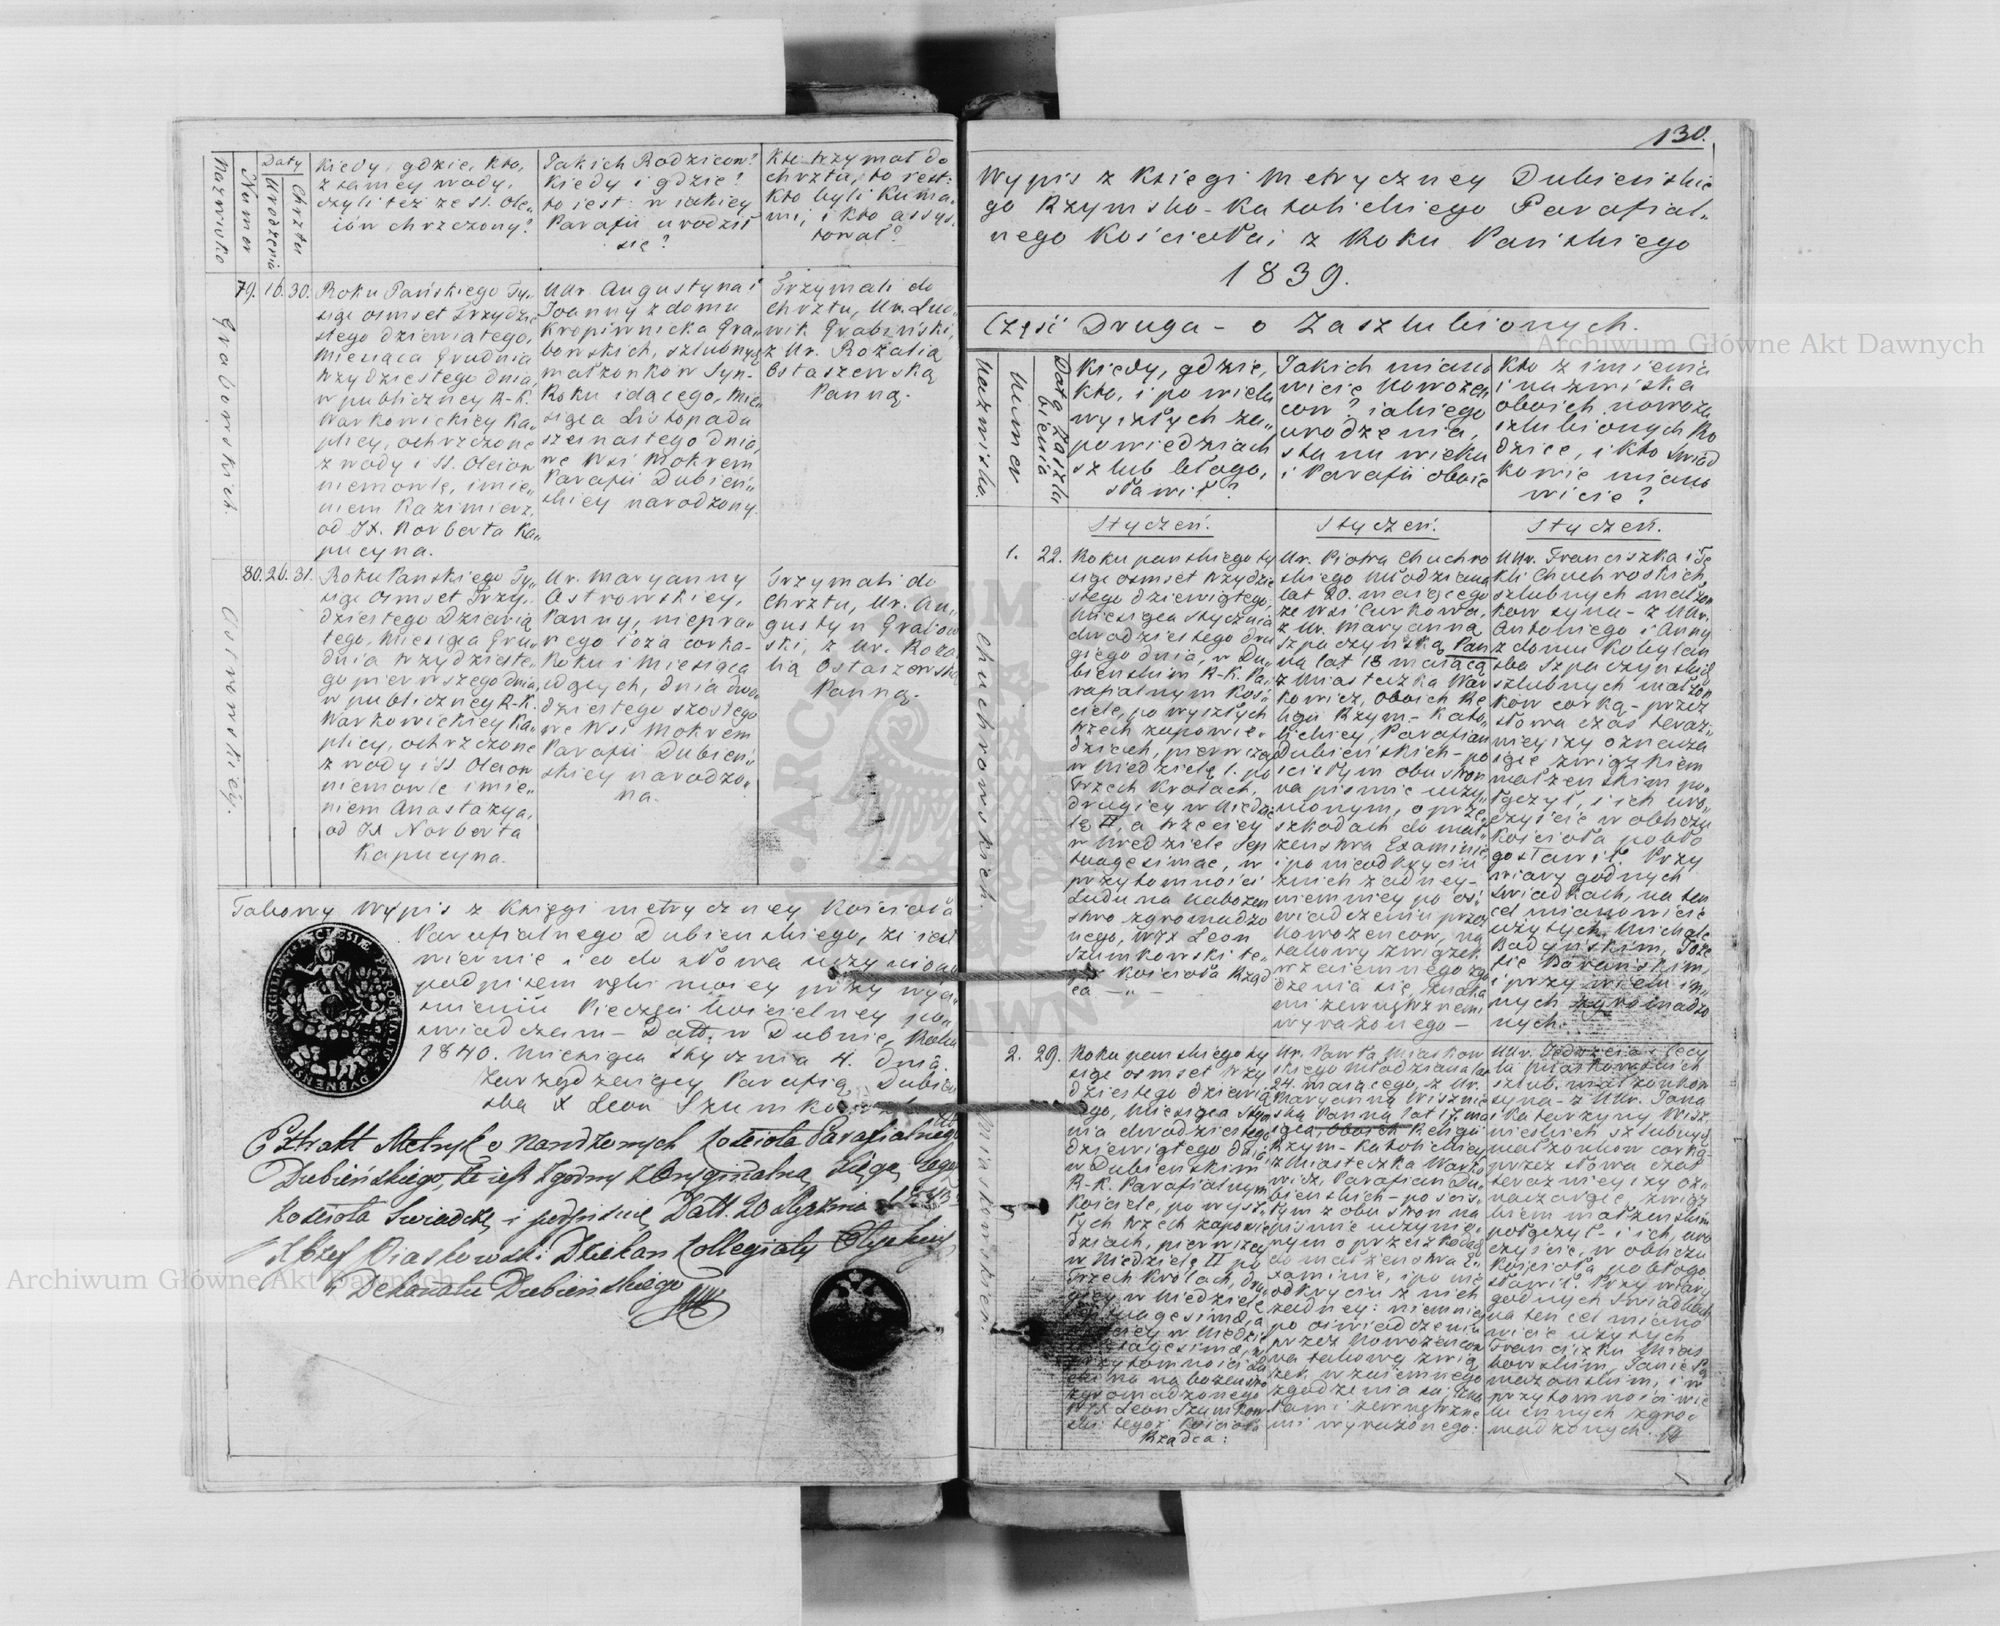 Nazwisko
Numer
Daty
Urodzenia
Chrztu
Kiedy, gdzie, kto,
z samey wody,
czyli też ze SS. Ole„
iów chrzczony?
Jakich Rodziców?
Kiedy i gdzie?
to iest: w iakiey
Parafii urodził
się?
Kto trzymał do
chrztu, to iest:
kto byli Kuma„
mi, i kto assys„
tował?
Grabowskich.
79. 16. 30.
Roku Pańskiego Ty„
siąc osmset Trzydzie
stego dziewiątego,
Miesiąca Grudnia
trzydziestego dnia,
w publiczney R-K.
Warkowickiey Ka„
plicy, ochrzczone
z wody i SS. Oleiow
niemowle, imie„
niem Kazimierz,
od JX. Norberta Ka„
pucyna.
UUr. Augustyna i
Joanny z domu
Kropiwnicka Gra„
bowskich, szlubnych
małżonków Syn-
Roku idącego, Mie„
siąca Listopada
szesnastego dnia,
we Wsi Mokrem
Parafii Dubień„
skiey narodzony.
Trzymali do
Chrztu, Ur. Lud„
wik Grabiński,
z Ur. Rozalią
Ostaszewską
Panną.
Ostrowskiey.
80. 26. 31.
Roku Pańskiego Ty„
siąc Osmset Trzy„
dziestego Dziewią
tego, Miesiąca Gru„
dnia trzydzieste„
go pierwszego dnia,
w publiczney R-K.
Warkowickiey Ka„
plicy, ochrzczone
z wody i SS. Oleiow
niemowle imie„
niem Anastazya,
od JX Norberta
Kapucyna.
Ur. Maryanny
Ostrowskiey,
Panny, niepra„
wego łoża corka-
Roku i Miesiąca
idących, dnia dwu
dziestego szostego
we Wsi Mokrem
Parafii Dubień„
skiey narodzo„
na.
Trzymali do
Chrztu, Ur. Au„
gustyn Grabow
ski, z Ur. Roza
lią Ostaszewską
Panną.
Takowy Wypis z Księgi metryczney Kościoła
Parafialnego Dubieńskiego, że iest
wiernie i co do słowa uczyniony
podpisem ręki moiey przy wyci„
snieniu Pieczęci kościelney po„
swiadczam - Datt. w Dubnie, Roku
1840. Miesiąca Stycznia 4. Dnia.
Zarządzaiący Parafią Dubień
ską X Leon Szumkowski
Extrakt Metryk o narodzonych Kościoła Parafialnego
Dubieńskiego, że iest zgodny z Oryginalną Księgą tegoż
Kościoła Swiadczę i podpisuię Datt. 20 Stycznia
X Józef Piaskowski Dziekan Kollegiaty Ołyckiey
Dekanatu Dubieńskiego
130.
Wypis z Księgi Metryczney Dubieńskie
go Rzymsko-Katolickiego Parafial„
nego Kościoła; z Roku Pańskiego
1839.
Część Druga - o Zaszlubionych.
Nazwisko.
Numer
Data Zaszlu
bienia
Kiedy, gdzie,
kto, i po wielu
wyszłych za„
powiedziach
szlub błogo„
sławił?
Jakich miano
wicie Nowożeń
cow? iakiego
urodzenia,
stanu wieku
i Parafii oboie
Kto z imienia
i nazwiska
oboich nowoza
szlubionych Ro
dzice, i kto Swiad
kowie miano
wicie?
Styczeń.
Styczeń.
Styczeń.
Chuchrowskich.
1. 22.
Roku pańskiego ty
siąc osmset trzydzie
stego dziewiątego,
Miesiąca Stycznia
dwudziestego dru
giego dnia, w Du„
bieńskim R-K. Pa„
rafialnym Koś„
ciele, po wyszłych
trzech zapowie„
dziach, pierwszey
w Niedzielę I. po
Trzech Krolach,
drugiey w Niedzie
lę II, a trzeciey
w Niedziele Sep
tuagesimae, w
przytomności
Ludu na nabożeń
stwo zgromadzo
nego, WJX Leon
Szumkowski te„
goż Kościoła Rząd
ca — „ —
Ur. Piotra Chuchro
skiego Młodziana
lat 20. maiącego
ze wsi Curkowa,
z Ur. Maryanną
Szpaczyńską Pan
ną lat 18 maiącą
z Miasteczka War
kowicz, oboich Re
ligii Rzym.- Kato„
lickiey, Parafian
Dubieńskich - po
scisłym obustron
na pismie uczy„
nionym, o prze„
szkodach do mał„
żenstwa Examinie,
i po nieodkryciu
z nich żadney-
niemniey po oś„
wiadczeniu przez
Nowożeńcow, na
takowy związek
wzaiemnego zgo
dzenia się, znaka
mi zewnętrznemi
wyrażonego —
UUr. Franciszka i Te
kli Chuchroskich,
szlubnych małżon
kow syna - z UUr.
Antoniego i Anny
z domu Kobylań
ska Szpaczynskich
szlubnych małżon
kow corką - przez
słowa czas teraz„
nieyszy oznacza
iące związkiem
małżenskim po„
łączył, i ich uro„
czyście w obliczu
Kościoła pobło
gosławił. Przy
wiary godnych
swiadkach, na ten
cel mianowicie
użytych, Michale
Badyńskim, Józe
fie Barańskim,
i przy wielu in„
nych zgromadzo
nych.
Miaskowskich.
2. 29.
Roku pańskiego ty
siąc osmset trzy
dziestego dziewią
tego, Miesiąca Stycz
nia dwudziestego
dziewiątego dnia,
w Dubieńskim
R-K. Parafialnym
Kościele, po wysz„
łych trzech zapowie
dziach, pierwszey
w Niedzielę II po
Trzech Krolach, dru
giey w Niedzielę
Septuagesimae, a
trzeciey w Niedzie
lę Sexagesimae, w
przytomności Lu
du na nabożeństwo
zgromadzonego
WJX Leon Szumkow
ski tegoż Kościoła
Rządca:
Ur. Pawła Miaskow
skiego Młodziana lat
24. maiącego, z Ur.
Maryanną Wisznie
ską Panną lat 17 ma
iącą, oboich Religii
Rzym.- Katolickiey
z Miasteczka Warko
wicz, Parafian Du„
bieńskich - po scis„
łym z obu stron na
pismie uczynio„
nym o przeszkodach
do małżenstwa E„
xaminie, i po nie
odkryciu z nich
żadney: niemniey
po oświadczeniu
przez Nowożeńcow
na takowy zwią
zek, wzaiemnego
zgodzenia się, zna
kami zewnętrzne
mi wyrażonego:
UUr. Jędrzeia i Cecy
lii Miaskowskich
szlub. małżonkow
syna - z UUr. Jana
i Katarzyny Wisz
nieskich szlubnych
małżonkow corką-
przez słowa czas
teraznieyszy oz„
naczaiące, związ
kiem małżeńskim
połączył - i ich uro
czyście, w obliczu
Kościoła pobłogo
sławił. Przy wiary
godnych Swiadkach
na ten cel miano
wicie użytych
Franciszku Mias
kowskim, Janie Pa
mazańskim, i w
przytomności wie
lu innych zgro„
madzonych.
Archiwum Główne Akt Dawnych
Archiwum Główne Akt Dawnych